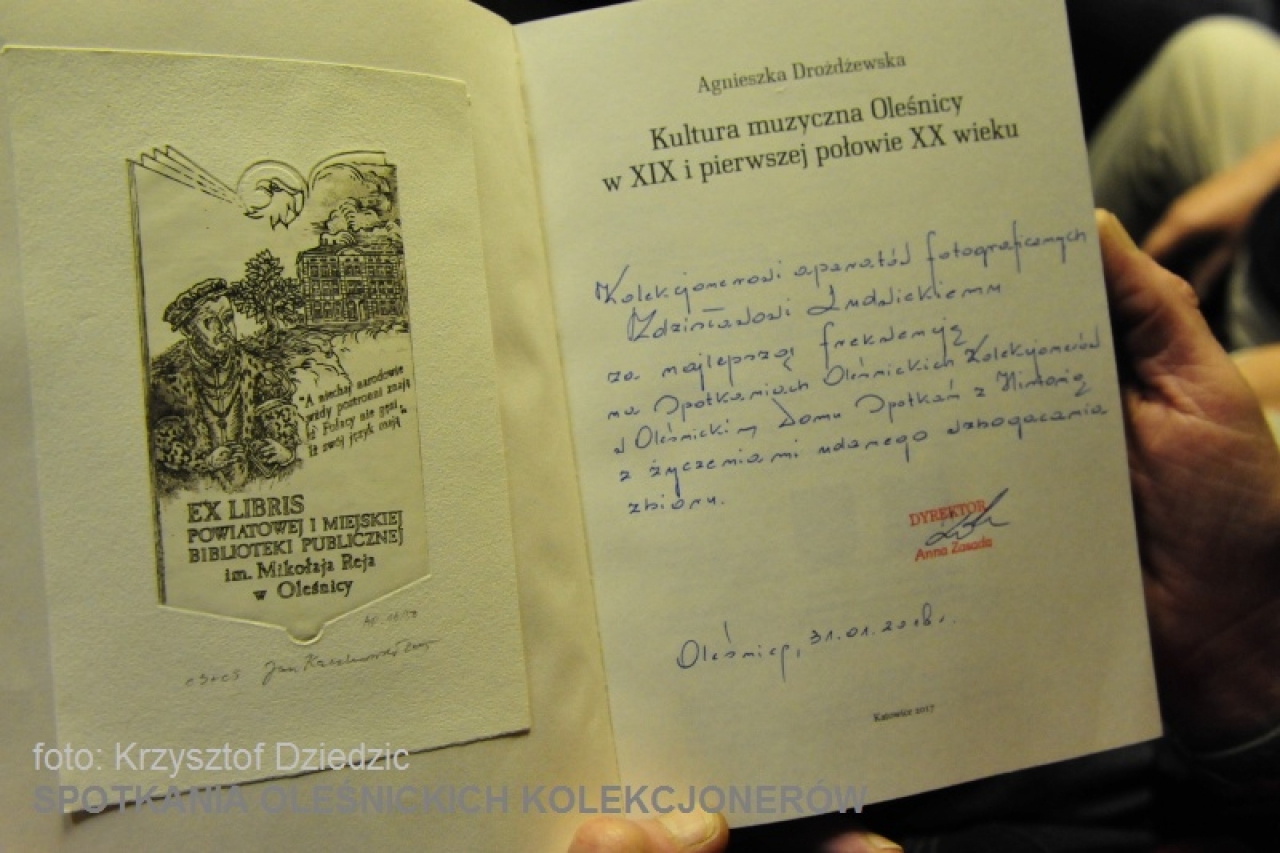 "A niechaj narodowie
wżdy postronni znają
iż Polacy nie gęsi,
iż swój język mają"
EX LIBRIS
POWIATOWEJ I MIEJSKIEJ
BIBLIOTEKI PUBLICZNEJ
im. Mikołaja Reja
w Oleśnicy
C3+C5 Jan
Agnieszka Drożdżewska
Kultura muzyczna Oleśnicy
w XIX i pierwszej połowie XX wieku
Kolekcjonerowi aparatów fotograficznych
Zdzisławowi
za najlepszą frekwencję
na Spotkaniach Oleśnickich Kolekcjonerów
w Oleśnickim Domu Spotkań z Historią
z życzeniami udanego wzbogacania
zbioru.
DYREKTOR
Anna Zasada
Oleśnica, 31.01.2018r.
Katowice 2017
foto: Krzysztof Dziedzic
SPOTKANIA OLEŚNICKICH KOLEKCJONERÓW